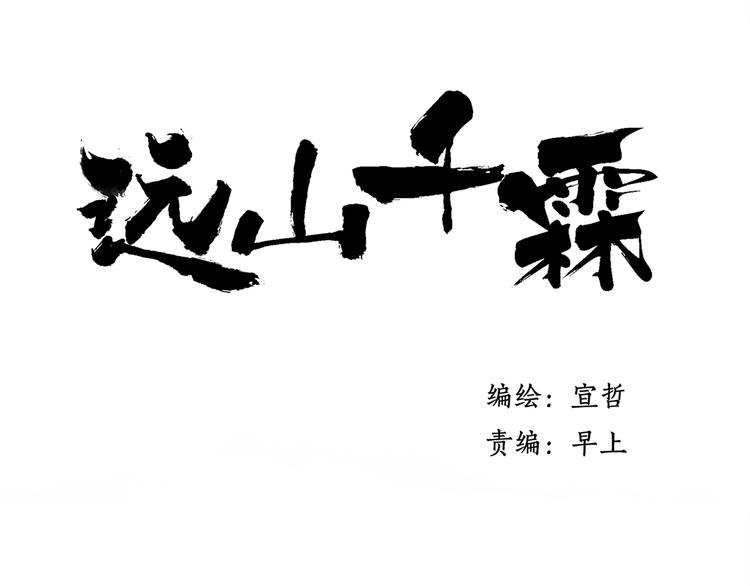 远山千霖
编绘：宣哲
责编：早上